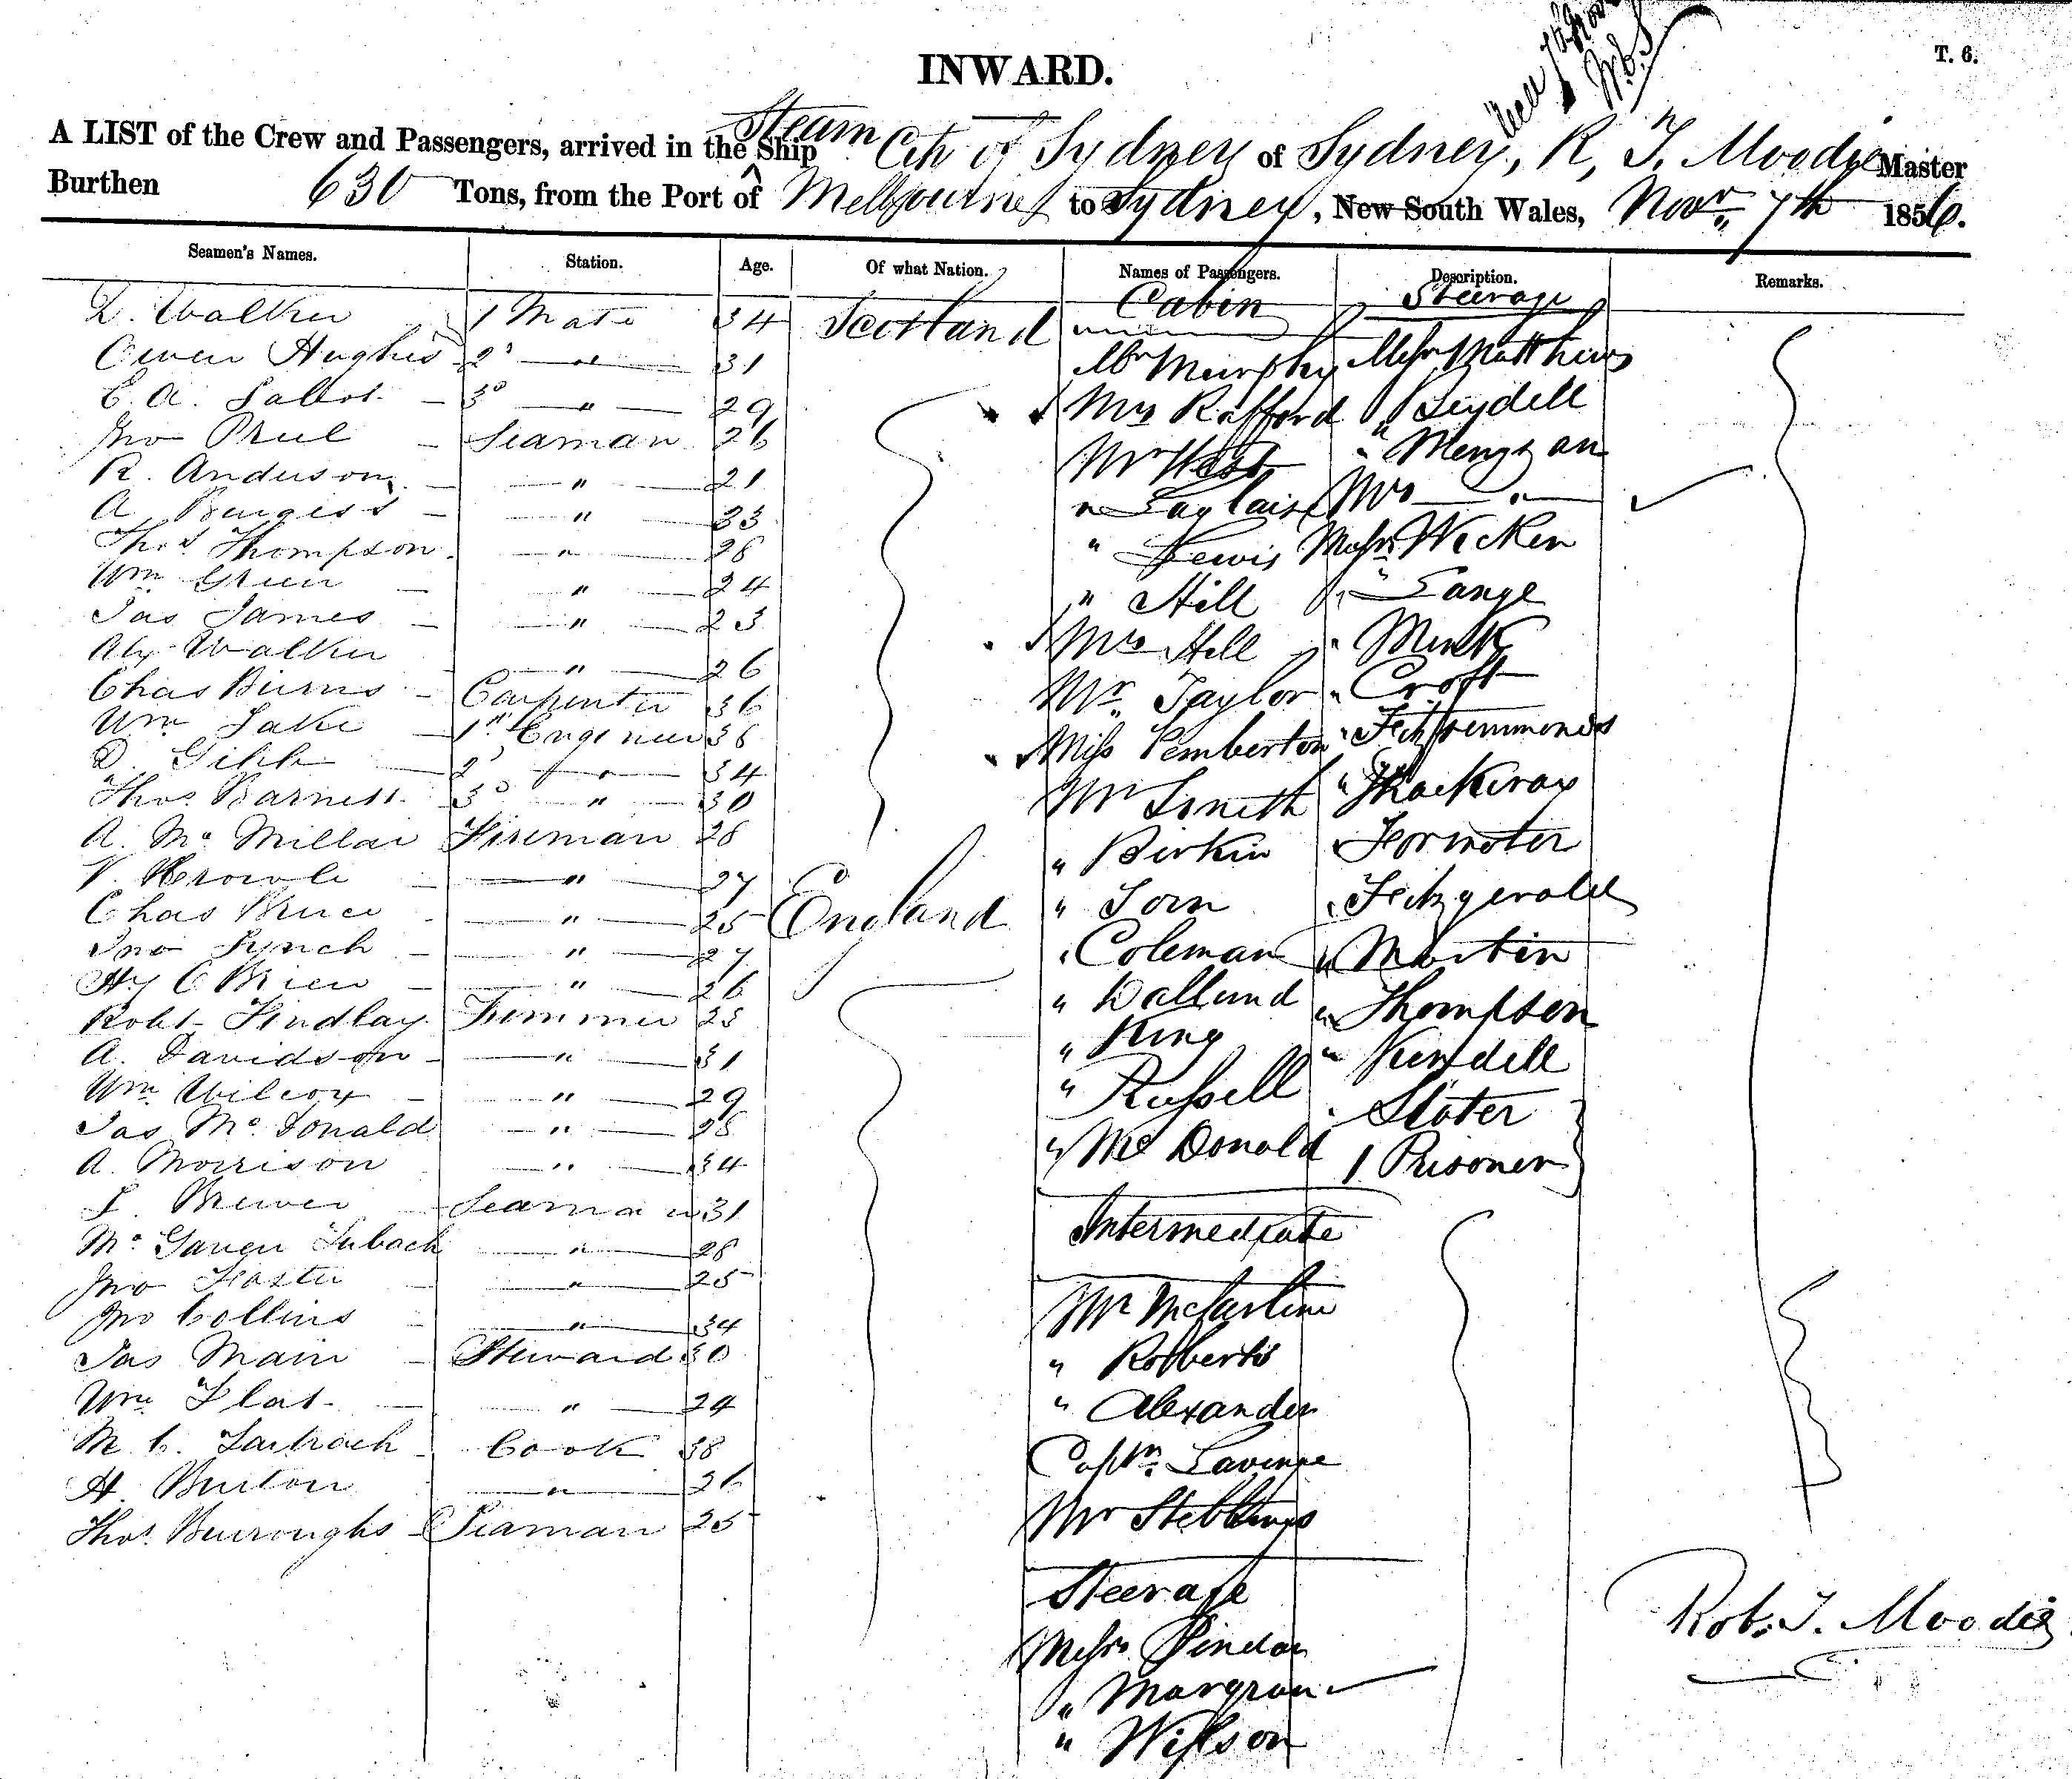 INWARD.
T. 6.
A LIST of the Crew and Passengers, arrived in the Steam Ship City of Sydney of Sydney, R. T. Moodie Master
Burthen 630 Tons, from the Port of Melbourne to Sydney, New South Wales, Novr. 7th 1856.
Seamen's Names. Station. Age. Of what Nation. Names of Passengers. Description. Remarks.
Cabin Steerage
Walker 1 Mate 34 Scotland
Owen Hughes 2d " 31 Mr Murphy Messrs Matthews
E. A. 3d " 29 Mrs Rafford " Leydell
Jno Seaman 26 Mr West "
R. Anderson " 21 " Mrs "
A. Burgess " 33 " Lewis Messrs Wicken
Thos Thompson " 28
Wm Green " 24 " Hill " Lange
Jas James " 23 Mrs Hill " Munk
Alex Walker " 26 Mr. Taylor " Croft
Chas Burns Carpenter 36 Miss Pemberton " Fitzsimmonds
Wm Lake 1st Engineer 38
D. Gibb 2d " 34 Mr Smith " Thackeray
Thos Barnett 3d " 30
A. Mc Millan Fireman 28 " Birkin "
" 27
Chas Bruce " 25 England " " Fitzgerald
Jno Lynch " 27 " Coleman " Martin
Hy O Brien " 26 " " Thompson
Robt Findlay Trimmer 23 " King " Kendell
A. Davidson " 31 " Russell " Slater
Wm Wilcox " 29
Jas Mc Donald " 28 " Mc Donald 1 Prisoner
A. Morrison " 34
Brewer Seaman 31 Intermediate
Mc " 28
Jno Foster " 25 Mr
Jno Collins " 34
Jas Main Steward 30 " Roberts
Wm " 24 " Alexander
M. C. Cook 38 Captn.
H. Burton " 26 Mr Stebbings
Thos Burroughs Seaman 25
Steerage
Messrs
"
" Wilson
Rob. T. Moodie